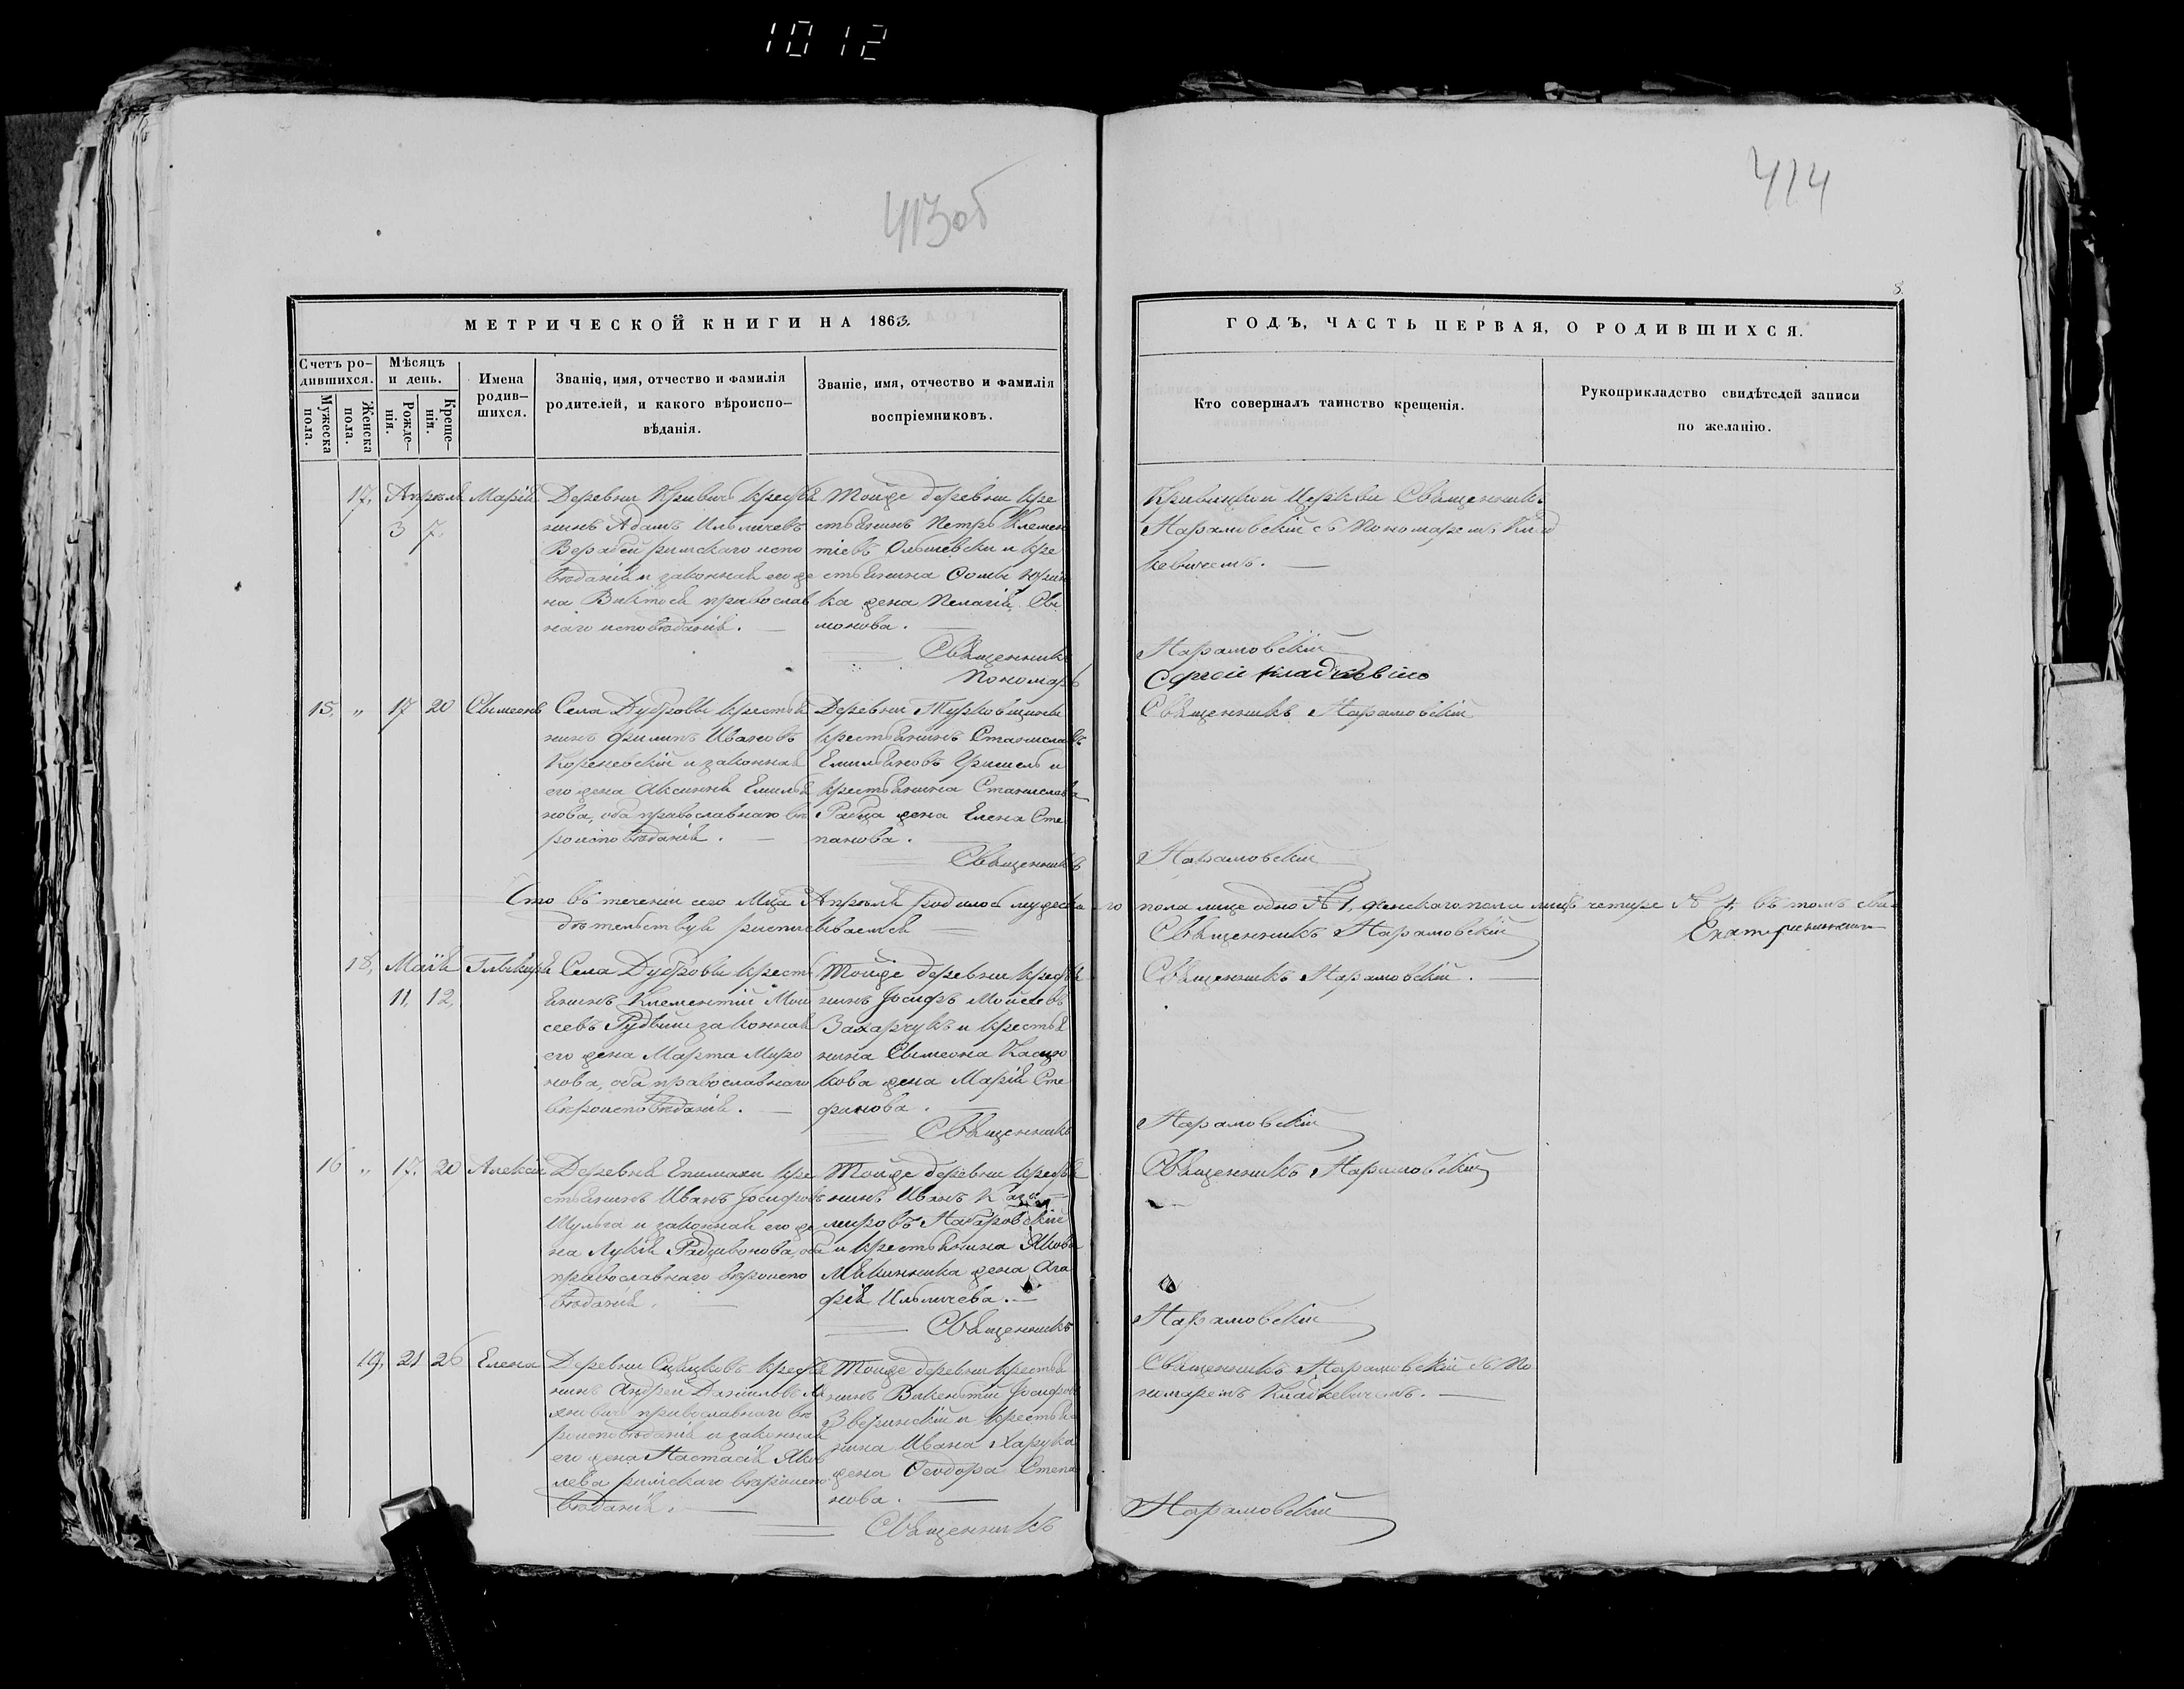 1012
413об
414
8.
МЕТРИЧЕСКОЙ КНИГИ НА 1863.
ГОДЪ, ЧАСТЬ ПЕРВАЯ, О РОДИВШИХСЯ.
Счетъ ро-
дившихся.
Мужеска
пола.
Женска
пола.
Мѣсяцъ
и день.
Рожде-
нія.
Креще-
нія.
Имена
родив-
шихся.
Званіе, имя, отчество и фамилія
родителей, и какого вѣроиспо-
вѣданія.
Званіе, имя, отчество и фамилія
воспріемниковъ.
Кто совершалъ таинство крещенія.
Рукоприкладство свидѣтелей записи
по желанію.
17, Апрѣля
3 7.
Марія
Деревни Кривичъ крестья
нинъ Адамъ Ильичевъ
Верабей римскаго испо
вѣданія и законная его же
на Виктося православ
наго исповѣданія.
Тойже деревни кре
стьянинъ Петръ Клемен
тіевъ и кре
стьянина Фомы
ка жена Пелагія Си
монова.
Священникъ
Пономарь
Кривицкой Церкви Священникъ
Нарамовскій съ Пономаремъ Клад
кевичемъ.
Нарамовскій
Сергій Кладкевичъ
15. " 17 20 Симеонъ
Села Дубровы крестья
нинъ Филипъ Ивановъ
Кореневскій и законная
его жена Аксинія Емилья
нова, оба православнаго вѣ
роисповѣданія.
Деревни Турковщизны
крестьянинъ Станиславъ
Емильяновъ Гришель и
крестьянина Станислава
Рабца жена Елена Сте
панова.
Священникъ
Священникъ Нарамовскій
Нарамовскій
Что въ теченіи сего Мца Апрѣля родилось мужеска
го пола лице одно № 1, женскаго пола лицъ четыре № 4, въ томъ сви
дѣтельствуя росписываемся
Священникъ Нарамовскій
18, Маія
11, 12,
Гликирія
Села Дубровы крест
янинъ Клементій Мои
сеевъ и законная
его жена Марта Миро
нова, оба православнаго
вѣроисповѣданія.
Тойже деревни крестья
нинъ Іосифъ Моисеевъ
Захарчукъ и крестья
нина Симеона
кова жена Марія Сте
фанова.
Священникъ
Священникъ Нарамовскій.
Нарамовскій
16 " 17. 20 Алексій
Деревни Епимахи кре
стьянинъ Иванъ Іосифовъ
Шульга и законная его же
на Лукія Радивонова, оба
православнаго вѣроиспо
вѣданія.
Тойже деревни крестья
нинъ Иванъ Кази
мировъ Нагаровскій
и крестьянина Якова
жена Ага
фія Ильичева.
Священникъ
Священникъ Нарамовскій
Нарамовскій
19, 21 26 Елена
Деревни крестья
нинъ Андрей Даниловъ
православнаго вѣ
роисповѣданія и законная
его жена Настасія Яков
лева римскаго вѣроиспо
вѣданія.
Тойже деревни крестья
нинъ Викентій Іосифовъ
Зверинскій и крестья
нина Ивана Харука
жена Феодора Степа
нова.
Священникъ
Священникъ Нарамовскій съ По
номаремъ Кладкевичемъ.
Нарамовскій